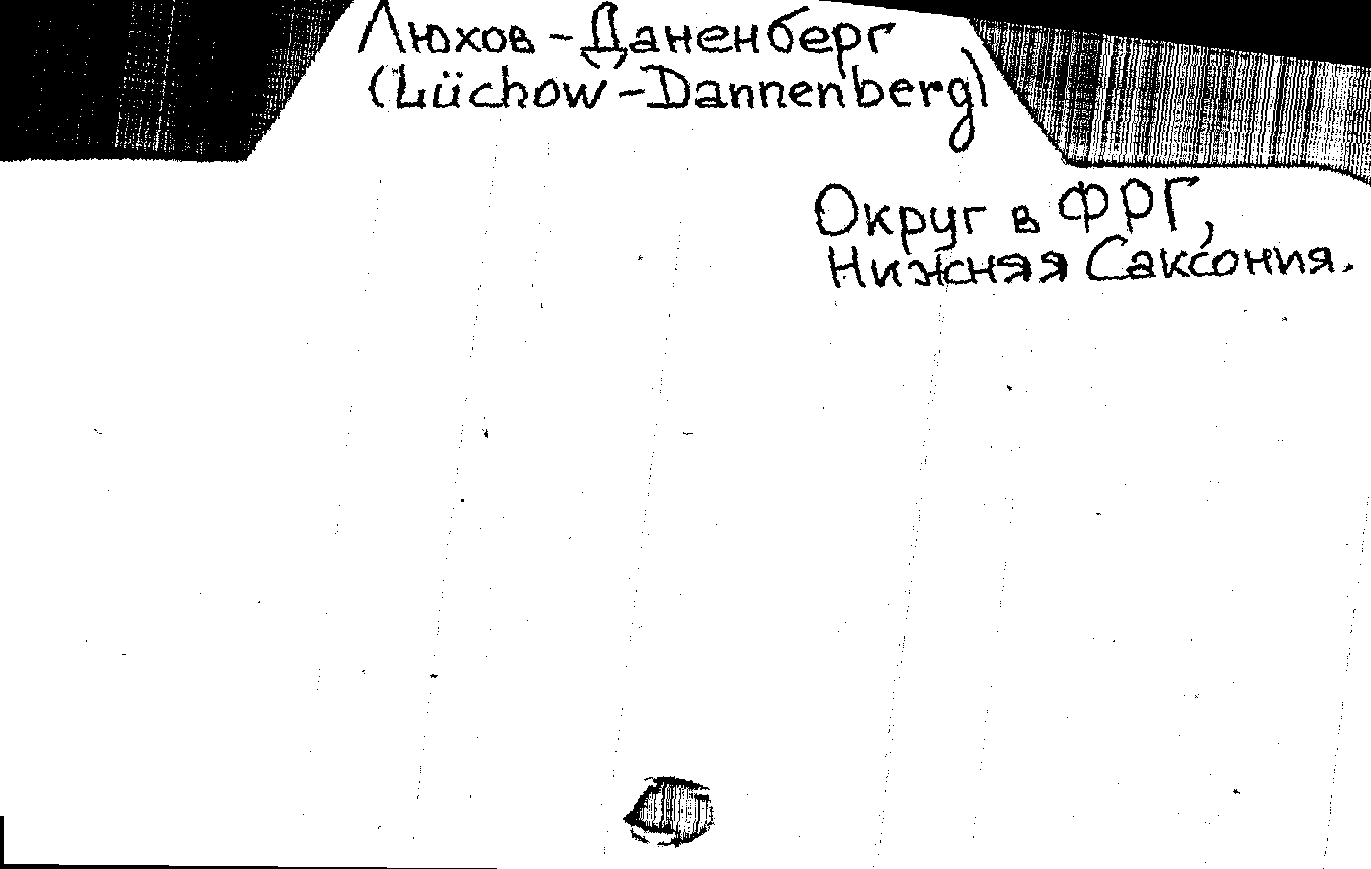 Люхов-Даненберг
(Lüchow-Dannenberg)
Округ в ФРГ,
Нижняя Саксония.